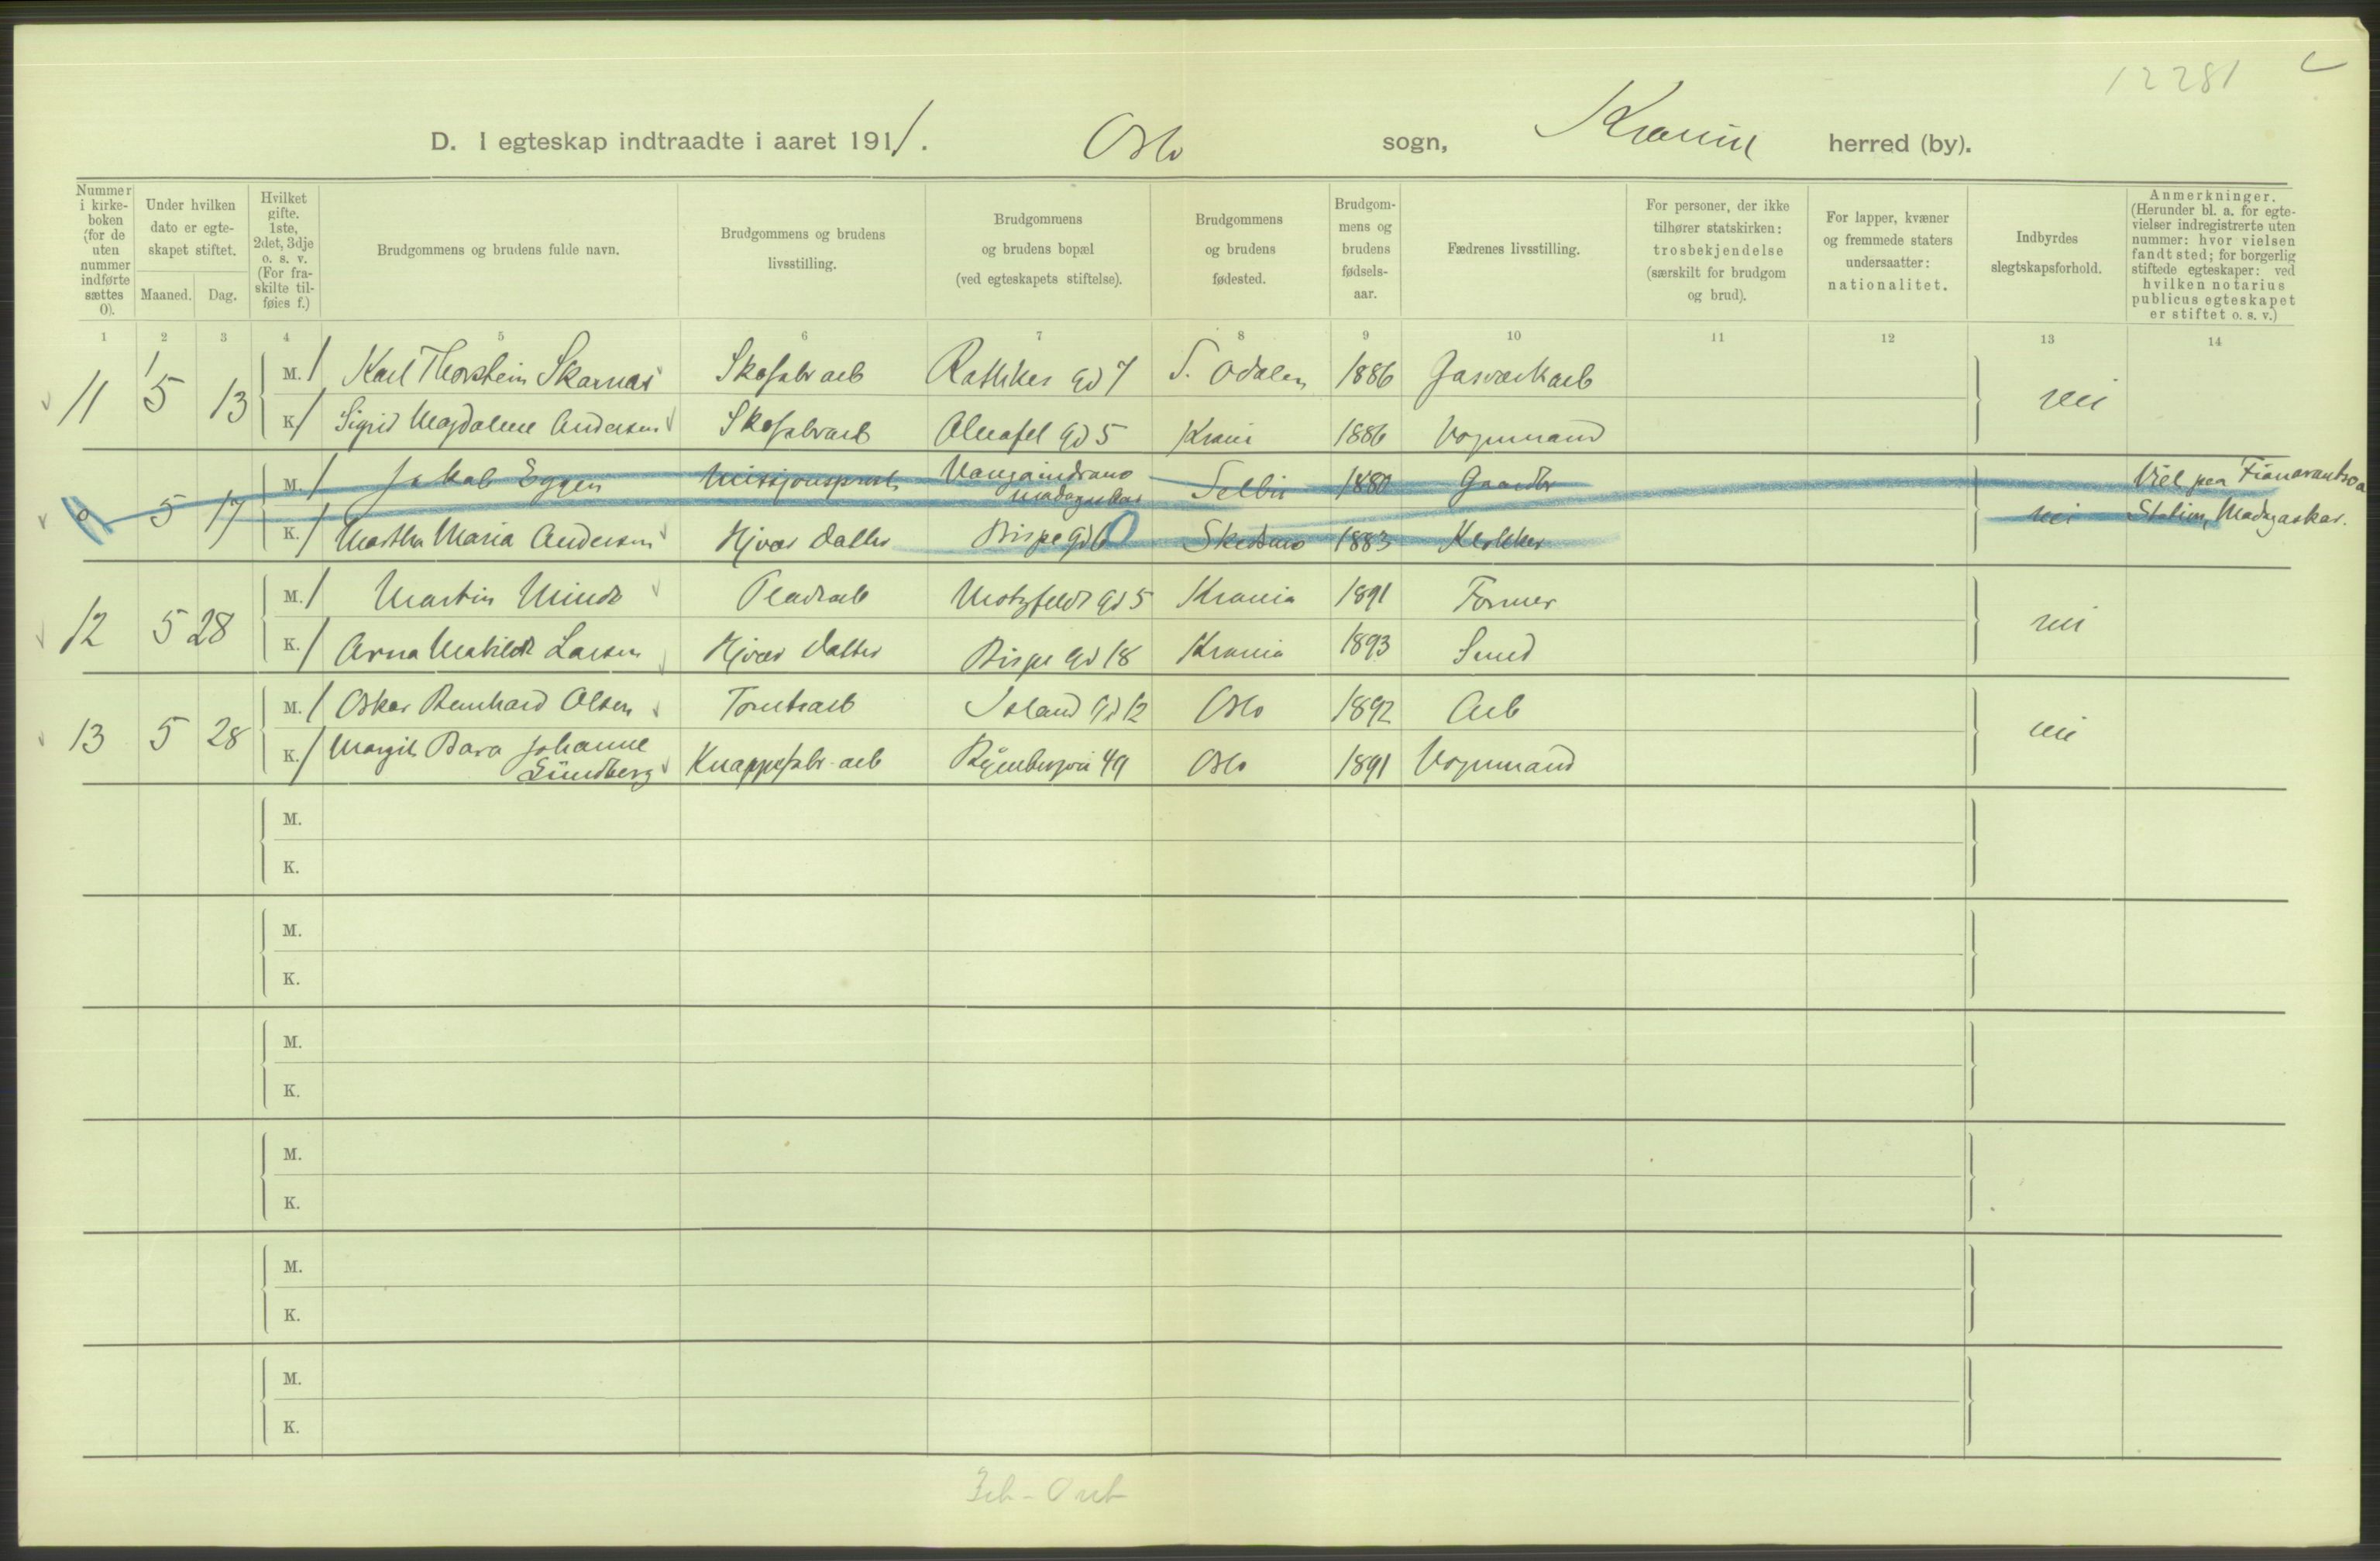 12281
D. I egteskap indtraadte i aaret 1911. Oslo sogn, Krania herred (by).
Nummer i kirkeboken (for de uten nummer indførte sættes 0). Under hvilken dato er egteskapet stiftet. Maaned. Dag. Hvilket gifte. 1ste, 2det, 3dje o. s. v. (For fraskilte tilføies f.) Brudgommens og brudens fulde navn. Brudgommens og brudens livsstilling. Brudgommens og brudens bopæl (ved egteskapets stiftelse). Brudgommens og brudens fødested. Brudgommens og brudens fødselsaar. Fædrenes livsstilling. For personer, der ikke tilhører statskirken: trosbekjendelse (særskilt for brudgom og brud). For lapper, kvæner og fremmede staters undersaatter: nationalitet. Indbyrdes slegtskapsforhold. Anmerkninger. (Herunder bl. a. for egtevielser indregistrerte uten nummer: hvor vielsen fandt sted; for borgerlig stiftede egteskaper: ved hvilken notarius publicus egteskapet er stiftet o. s. v.)
1 2 3 4 5 6 7 8 9 10 11 12 13 14
11 5 13 M. 1 Karl Thorstein Skarnas Skofabrarb Rathkes gd 7 S. Odalen 1886 Gasværkarb nei
K. 1 Sigrid Magdalene Andersen Skofabrarb Alnafel gd 5 Krania 1886 Vognmand
0 5 17 M. 1 Jakob Eggen Missjonsprest Vangaindrano Madagaskar Selbu 1880 Gaardbr nei Viet paa Fianarantsoa Station, Madagaskar.
K. 1 Martha Maria Andersen Hjvær datter Bispe gd 6 Skedsmo 1883 Klokker
12 5 28 M. 1 Martin Minde Pladearb Motzfeldt gd 5 Krania 1891 Former nei
K. 1 Arna Mathilde Larsen Hjvær datter Bispe gd 18 Krania 1893 Smed
13 5 28 M. 1 Oskar Bernhard Olsen Tomtearb Island gd 12 Oslo 1892 Arb nei
K. 1 Margit Bara Johanne Lundberg Knappefabr. arb Ryenbergvei 49 Oslo 1891 Vognmand
M.
K.
M.
K.
M.
K.
M.
K.
M.
K.
M.
K.